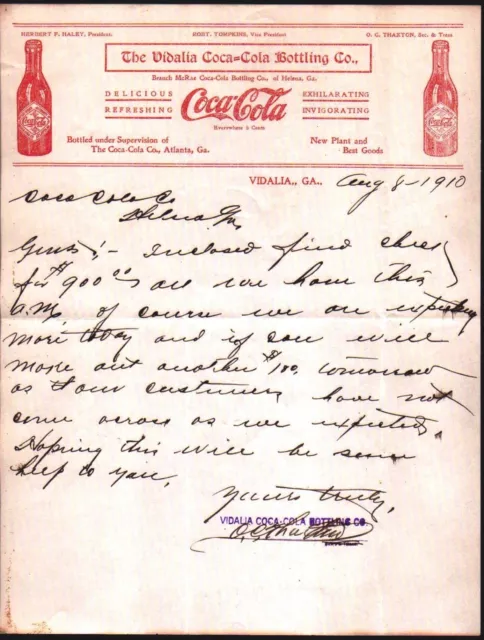 HERBERT P. HALEY, President. ROBT. TOMPKINS, Vice President O. C. THAXTON, Sec. & Treas
The Vidalia Coca-Cola Bottling Co.,
Branch McRae Coca-Cola Bottling Co., of Helena, Ga.
DELICIOUS Coca-Cola EXHILARATING
REFRESHING INVIGORATING
Everywhere 5 Cents
Bottled under Supervision of New Plant and
The Coca-Cola Co., Atlanta, Ga. Best Goods
VIDALIA,, GA., Aug 8-1910
Coca Cola Co
Helena Ga,
Gents!- Inclosed find check
for $900.00 all we have this
a.m. of course we are expecting
more today and if so will
make out another $100. tomorrow
as our customers have not
come across as we expected.
Hoping this will be some
help to you,
Yours truly,
VIDALIA COCA-COLA BOTTLING CO.
O C Thaxton